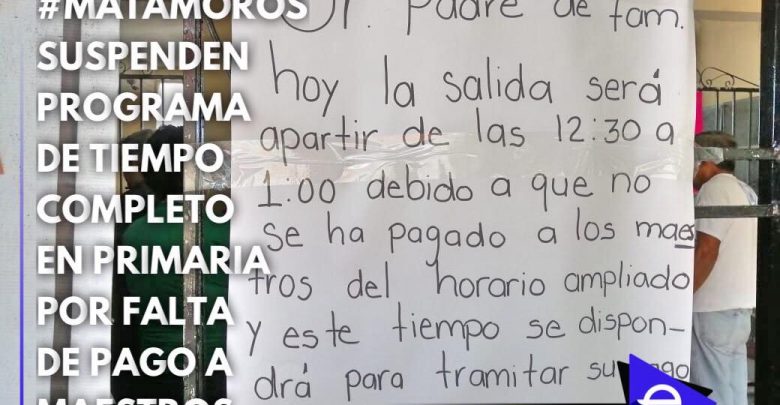 #MATAMOROS
SUSPENDEN
PROGRAMA
DE TIEMPO
COMPLETO
EN PRIMARIA
POR FALTA
DE PAGO A
MAESTROS
Sr. Padre de fam.
hoy la salida será
apartir de las 12:30 a
1:00 debido a que no
se ha pagado a los maes
tros del horario ampliado
y este tiempo se dispon-
drá para tramitar su